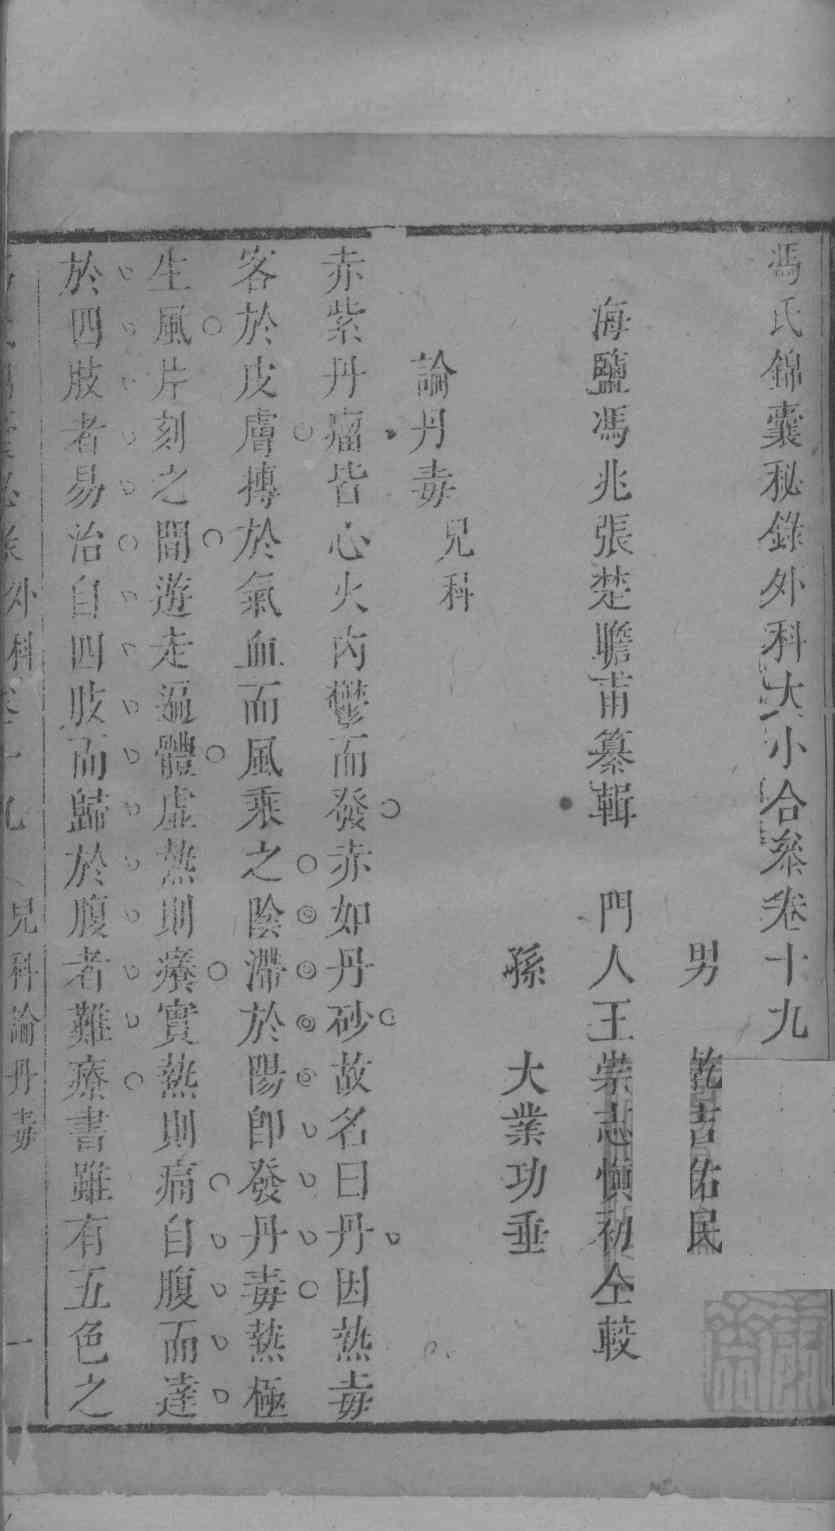 馮氏錦囊秘錄外科大小合叅卷十九
男 乾吉佑民
海鹽馮兆張楚瞻甫纂輯 門人王崇志愼初仝較
孫 大業功垂
論丹毒 兒科
赤紫丹瘤皆心火內鬱而發赤如丹砂故名曰丹因熱毒
客於皮膚摶於氣血而風乘之陰滯於陽卽發丹毒熱極
生風片刻之間遊走遍體虛熱則癢實熱則痛自腹而達
於四肢者易治自四肢而歸於腹者難療書雖有五色之
外科卷十九 兒科論丹毒 一